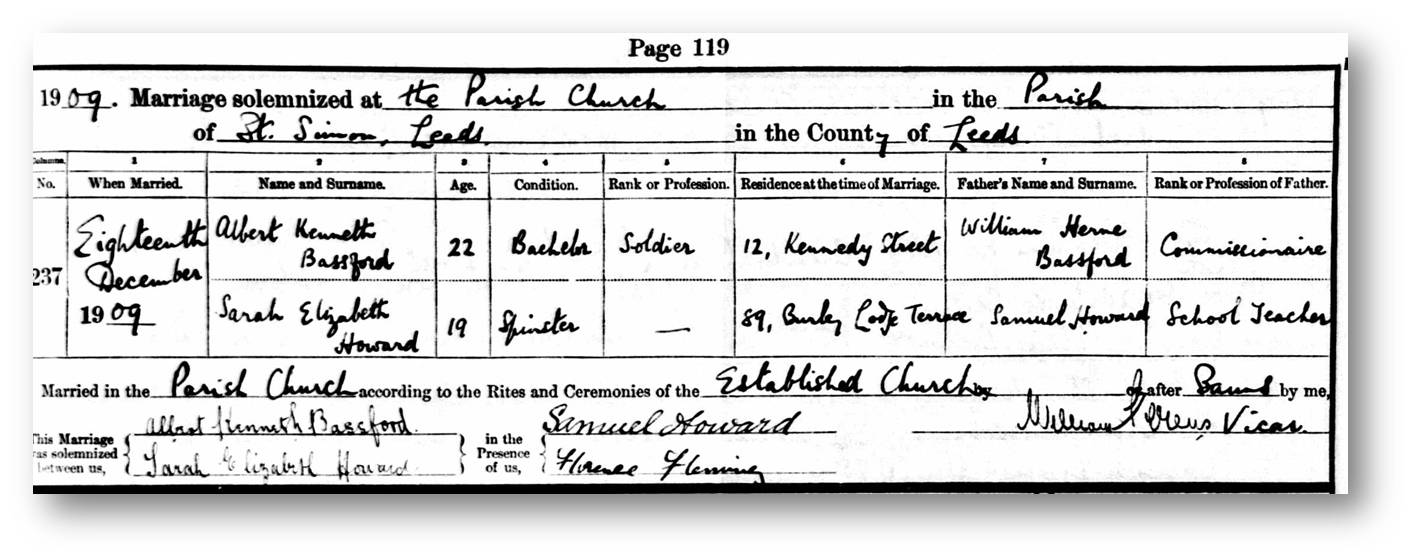 Page 119
1909. Marriage solemnized at the Parish Church in the Parish
of St. Simon, Leeds. in the County of Leeds
Columns. 1 2 3 4 5 6 7 8
No. When Married. Name and Surname. Age. Condition. Rank or Profession. Residence at the time of Marriage. Father's Name and Surname. Rank or Profession of Father.
237 Eighteenth December 1909
Albert Kenneth Bassford 22 Bachelor Soldier 12, Kennedy Street William Herne Bassford Commissionaire
Sarah Elizabeth Howard 19 Spinster — 89, Burley Lodge Terrace Samuel Howard School Teacher
Married in the Parish Church according to the Rites and Ceremonies of the Established Church by or after Banns by me,
This Marriage was solemnized between us,
Albert Kenneth Bassford
Sarah Elizabeth Howard
in the Presence of us,
Samuel Howard
Florence Fleming
William Vicar.